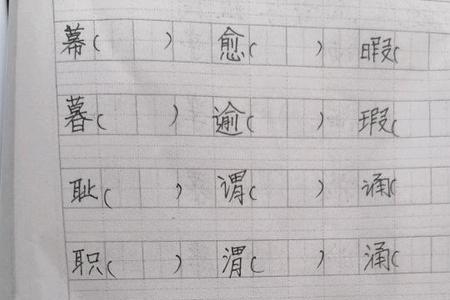 幕( ) 愈( ) 暇(
暮( ) 逾( ) 瑕(
耻( ) 谓( ) 诵(
职( ) 渭( ) 涌(